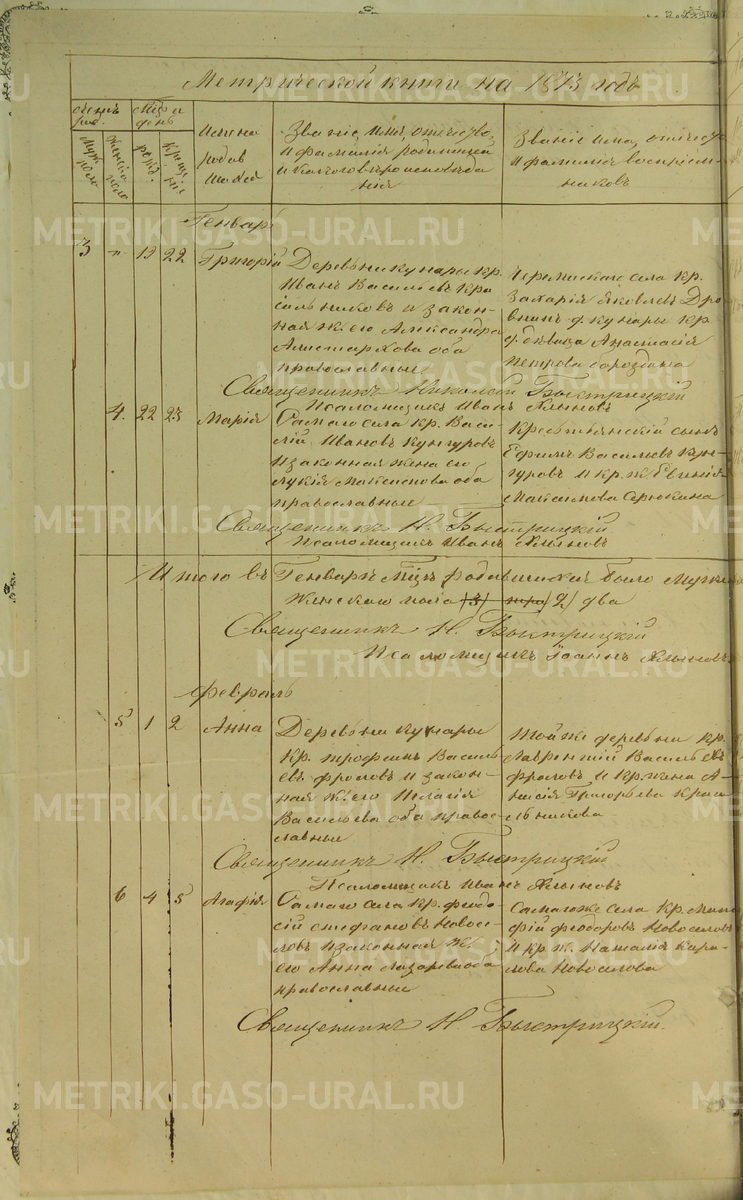 Метрической книги на 1873 годъ
Счетъ род.
Мѣц и день
Муж. пола
Женска пола
рожд.
креще нія
Имена родив шихся
Званіе, имя, отчество,
и фамилія родителей
и какого вѣроисповѣда
нія
Званіе имя, отчество
и фамилія воспріем-
никовъ
Генварь
3 " 19 22
Григорій
Деревни Кунары кр.
Иванъ Васильевъ Кра
сильниковъ и закон-
ная ж. его Александра
Аристархова оба
православные
села кр.
Захарій Яковлевъ Дро
внинъ д. Кунары кр.
дѣвица Анастасія
Петрова Бороздина
Священникъ Николай Быстрицкій
Псаломщикъ Иванъ
4. 22 23
Марія
Самаго села кр. Васи-
лій Ивановъ Кунгуровъ
и законная жена его
Лукія Максимова оба
православные
Крестьянскій сынъ
Ефимъ Васильевъ Кун-
гуровъ и кр. ж. Евгенія
Максимова
Священникъ Н. Быстрицкій
Псаломщикъ Иванъ
Итого въ Генварѣ Мцѣ родившихся было Муж
Женскаго пола (3) три (2) два
Священникъ Н. Быстрицкій
Псаломщикъ Іоаннъ
Февраль
5 1 2
Анна
Деревни Кунары
Кр. Трофимъ Василь
евъ Фроловъ и закон-
ная ж. его Пелагія
Васильева оба право-
славные
Той же деревни кр.
Лаврентій Васильевъ
Фроловъ и кр. жена А-
нисія Григорьева Краси
льникова
Священникъ Н. Быстрицкій
Псаломщикъ Иванъ
6 4 5
Агафія
Самаго села кр. Феодо-
сій Стефановъ Новосе-
ловъ и законная ж.
его Анна Лазарева оба
православные
Самаго же села кр.
Феодоровъ Новоселовъ
и кр. ж. Наталія
Новоселова
Священникъ Н Быстрицкій.
METRIKI.GASO-URAL.RU